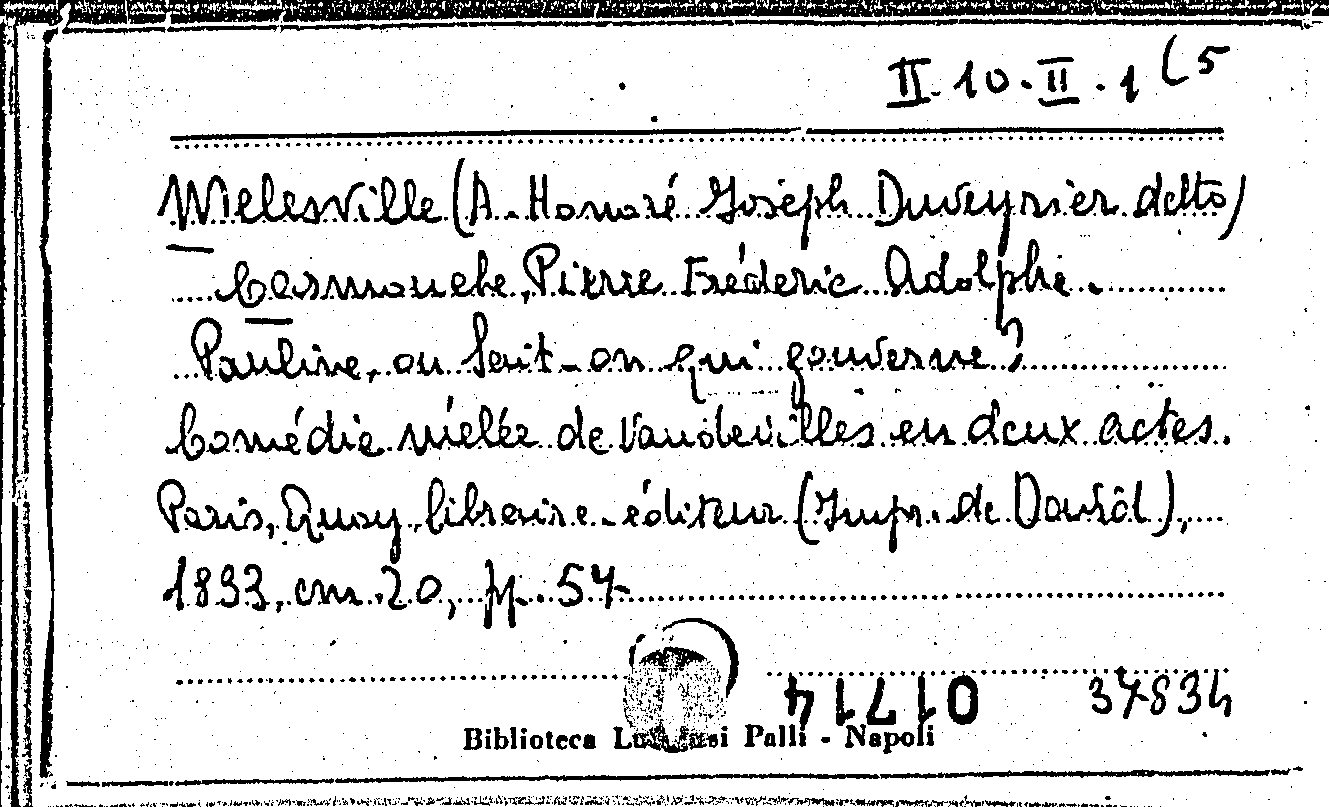 II. 10. II. 1 (5
Melesville (A. Honoré Joseph Duveyrier detto)
Carmouche, Pierre Fréderic Adolphe.
Pauline, ou Sait-on qui gouverne?
Comédie mêlée de Vaudevilles en deux actes.
Paris, Quoy, libraire-éditeur (Impr. de David),
1833, cm. 20, pp. 57
01714 37834
Biblioteca Palli - Napoli